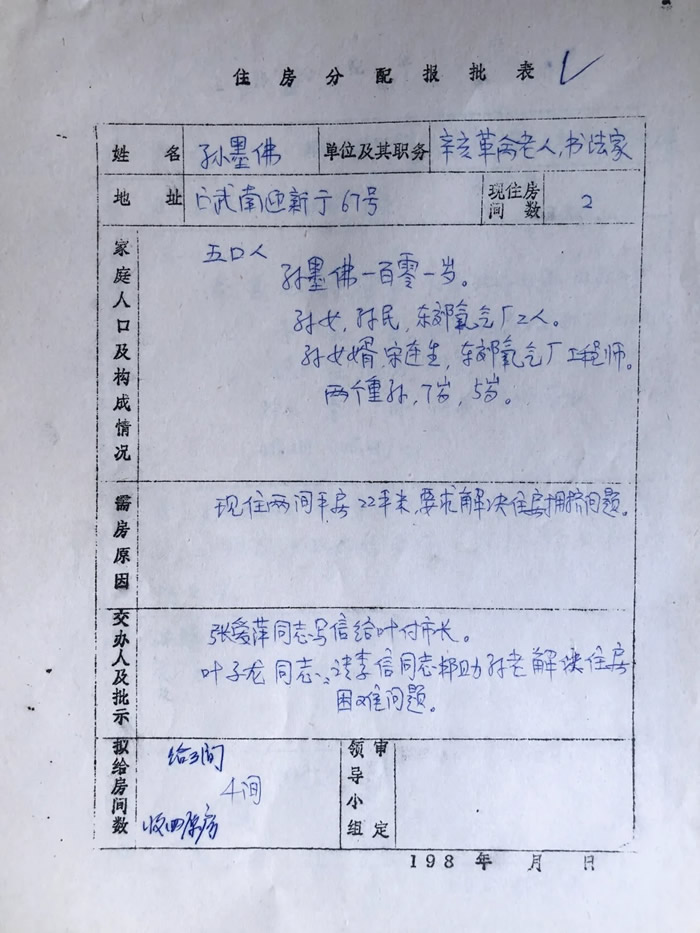 住房分配报批表
姓名 孙墨佛 单位及其职务 辛亥革命老人，书法家
地址 宣武南迎新街67号 现住房间数 2
家庭人口及构成情况
五口人
孙墨佛一百零一岁。
孙女，孙民，东郊氧气厂工人。
孙女婿，宋连生，东郊氧气厂工程师。
两个重孙，7岁，5岁。
需房原因
现住两间平房22平米，要求解决住房拥挤问题。
交办人及批示
张爱萍同志写信给叶付市长。
叶子龙同志：请李信同志帮助孙老解决住房
困难问题。
拟给房间数
给3间
4间
收回原房
领导小组审定
198 年 月 日